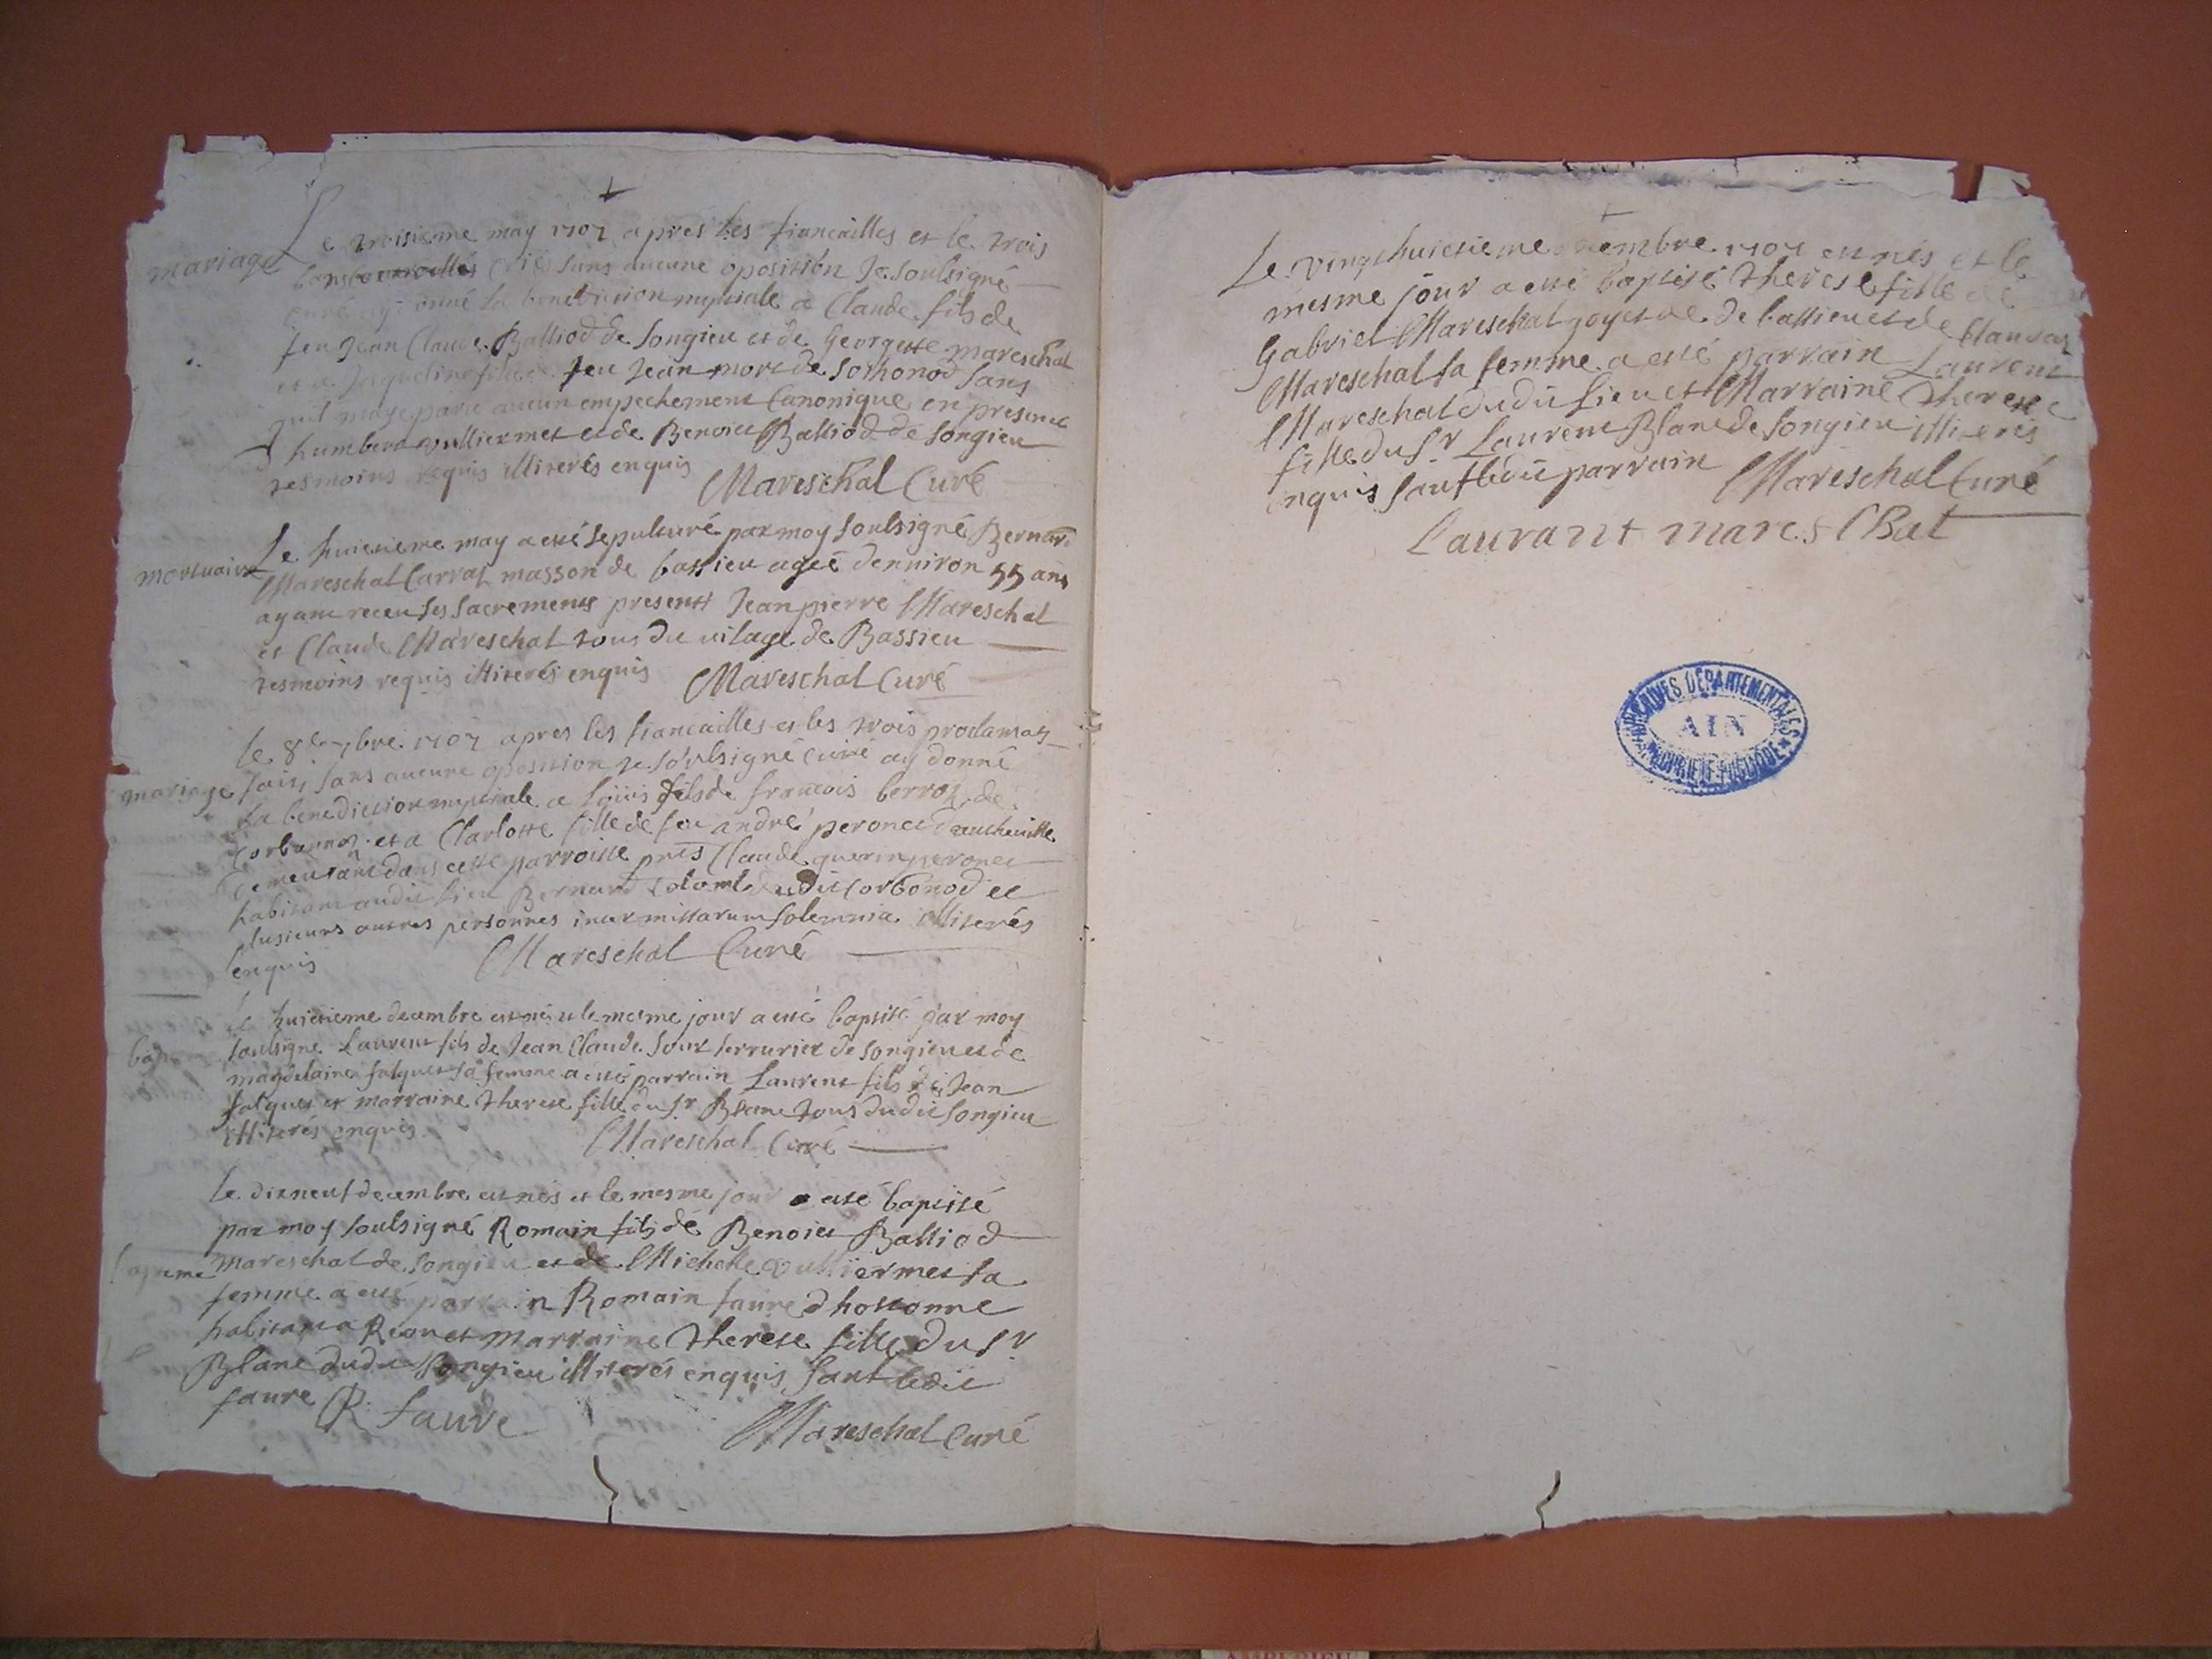 mariage
Le troisieme may 1707 apres les fiancailles et le trois
bans sans aucune oposition Je soulsigné
curé ay donné la benediction nuptiale a Claude fils de
feu Jean Claude Balliod de Songieu et de Georgette mareschal
et a Jaqueline fille de feu Jean mort de Sothonod sans
quil maye parû aucun empechement Canonique en presence
d humbert vulliermet et de Benoict Balliod de Songieu
tesmoins requis illiterés enquis Mareschal Curé
mortuaire
Le huictieme may a esté sepulturé par moy soulsigné Bernard
Mareschal Carraz masson de bassieu agée denuiron 55 ans
ayant receu ses sacrements presents Jean pierre Mareschal
et Claude Mareschal tous du uilage de Bassieu
tesmoins requis illiterés enquis Mareschal Curé
mariage
le 8e 7bre 1707 apres les fiancailles et les trois proclamaõns
sans aucune oposition Je soulsigné Curé ay donné
La benediction nuptiale a Loüis fils de francois berroz de
Corbonnoz et a Charlotte fille de feu andré peronet
demeurant dans cette parroisse pnts Claude guerin peronet
habitant audit lieu Bernard dudit Corbonod et
plusieurs autres personnes inter missarum solemnia illiterés
enquis Mareschal Curé
Le huictieme decembre est né et le mesme jour a esté baptisé par moy
soulsigné Laurent fils de Jean Claude serrurier de Songieu et de
magdelaine falquet sa femme a esté parrain Laurent fils de Jean
falquet et marraine therese fille du sr Blanc tous dudit Songieu
illiterés enquis Mareschal Curé
Le dixneuf decembre est nés et le mesme jour a esté baptisé
par moy soulsigné Romain fils de Benoict Balliod
bapteme
mareschal de Songieu et de Michelle vulliermet sa
femme a esté parrain Romain faure d hostonne
habitant a et marraine therese fille du sr
Blanc dudit Songieu illiterés enquis sauf ledit
faure R. faure Mareschal Curé
Le vingthuictieme 1707 est nés et le
mesme jour a esté baptisé therese fille de
Gabriel Mareschal de bassieu et de
Mareschal sa femme a esté parrain Laurent
Mareschal dudit Lieu et Marraine therese
fille du sr Laurent Blanc de Songieu illiterés
enquis sauf ledit parrain Mareschal Curé
Laurant mareschal
ARCHIVES DÉPARTEMENTALES
AIN
PROPRIÉTÉ PUBLIQUE